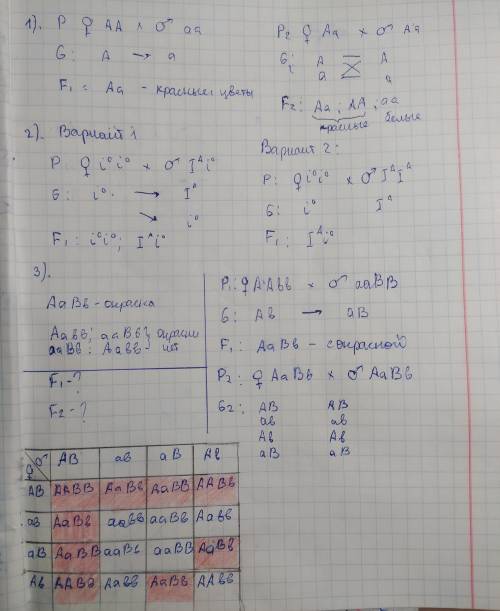 1). P ♀ AA × ♂ aa
G: A → a
F₁ = Aa - красные цветы
P₂ ♀ Aa × ♂ Aa
G₂ A A
a a
F₂: Aa; AA; aa
красные белые
2). Вариант 1
P: ♀ i⁰i⁰ × ♂ Iᴬi⁰
G: i⁰ → Iᴬ
→ i⁰
F₁: i⁰i⁰; Iᴬi⁰
Вариант 2:
P: ♀ i⁰i⁰ × ♂ IᴬIᴬ
G: i⁰ Iᴬ
F₁: Iᴬi⁰
3).
AaBb - окраска
F₁ - ?
F₂ - ?
P₁: ♀ AAbb × ♂ aaBB
G: Ab → aB
F₁: AaBb - с окраской
P₂: ♀ AaBb × ♂ AaBb
G₂: AB AB
ab ab
Ab Ab
aB aB
♀ ♂ AB ab aB Ab
AB AABB AaBb AaBB AABb
ab AaBb aabb aaBb Aabb
aB AaBB aaBb aaBB AaBb
Ab AABb Aabb AaBb AAbb